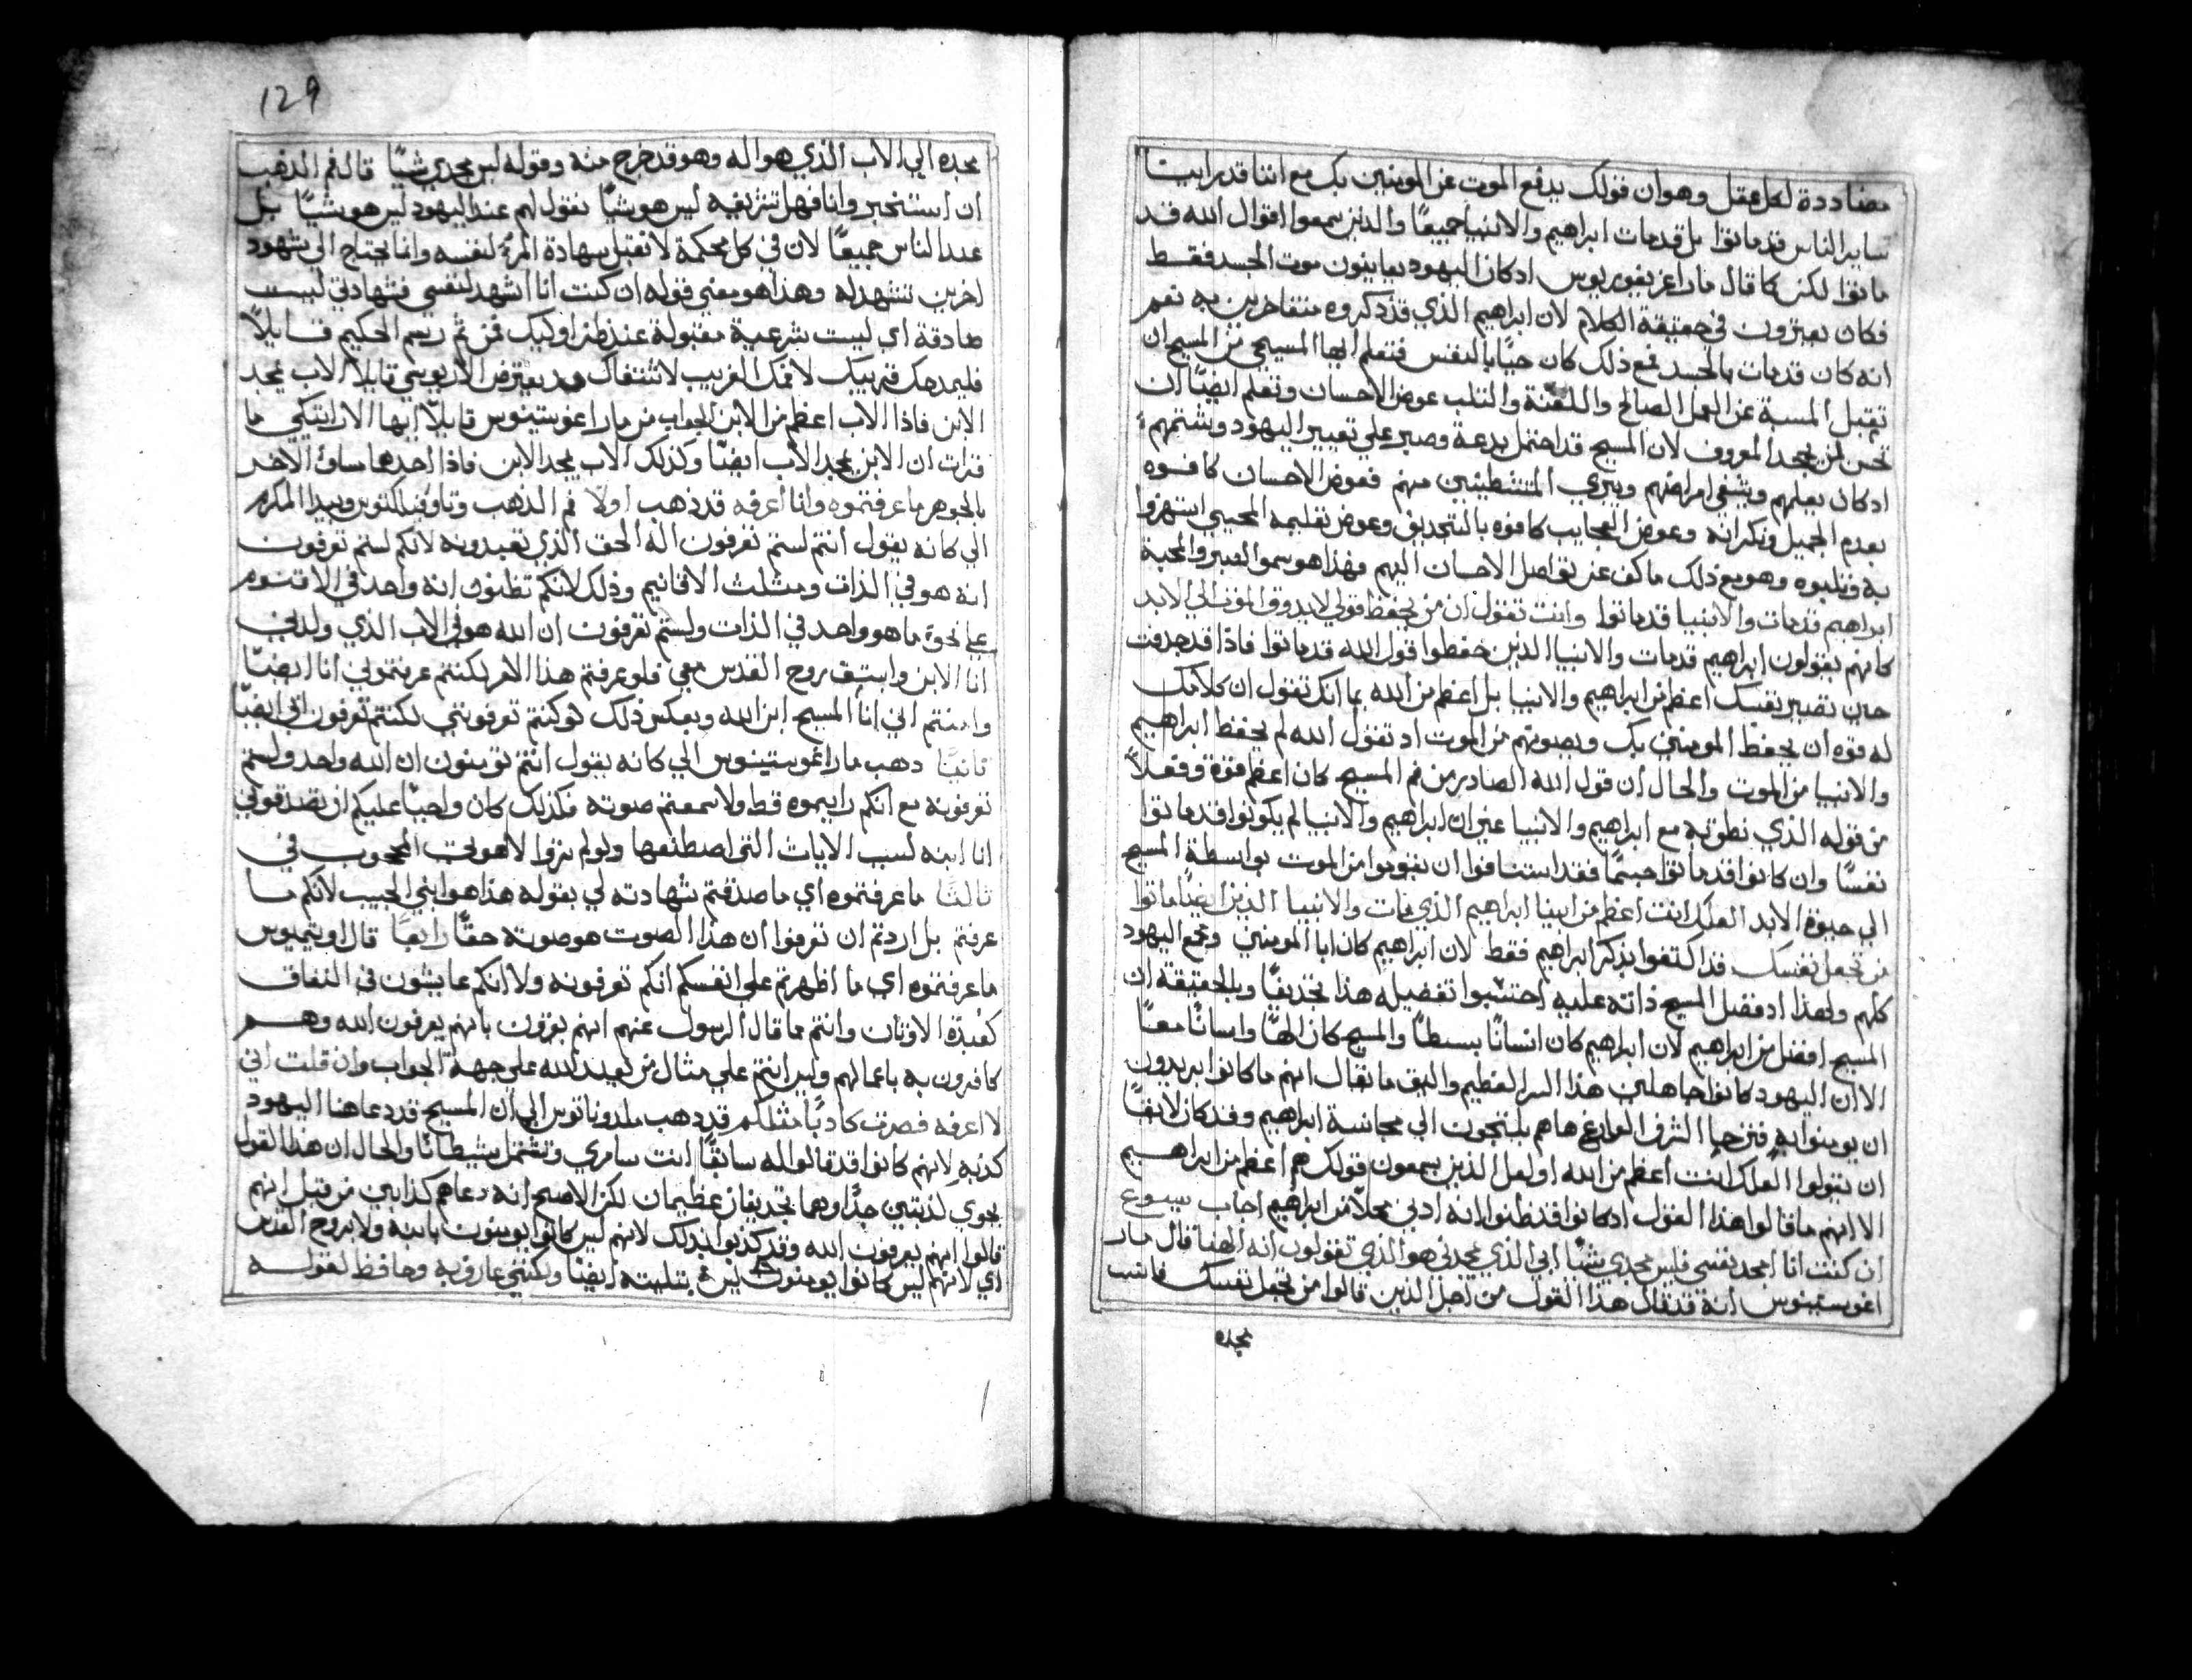 مضاددة لكل عقل وهو ان قولك يدفع الموت عن المومنين بك مع اننا قد راينا
ساير الناس قد ماتوا بل قد مات ابراهيم والانبيا جميعًا والذين سمعوا اقوال الله قد
ماتوا لكن كما قال مار اغريغوريوس اذ كان اليهود يعاينون موت الجسد فقط
فكان يعثرون في حقيقة الكلام لان ابراهيم الذي قد ذكروه متفاخرين به نعم
انه كان قد مات بالجسد فمع ذلك كان حيًا بالنفس فتعلم ايها المسيحي من المسيح ان
تقبل المسبة عن العمل الصالح واللعنة والتلب عوض الاحسان وتعلم ايضًا ان
تحسن لمن يجحد المعروف لان المسيح قد احتمل بدعة وصبر علي تعيير اليهود وشتمهم
اذ كان يعلمهم ويشفي امراضهم ويبري المتشيطنين منهم فعوض الاحسان كافوه
بعدم الجميل ونكرانه وعوض العجايب كافوه بالتجديف وعوض تعليمه المحيي استهزوا
به وثلبوه وهو مع ذلك ما كف عن تواصل الاحسان اليهم فهذا هو سمو الصبر والمحبة
ابراهيم قد مات والانبيا قد ماتوا وانت تقول ان من يحفظ قولي لا يذوق الموت الي الابد
كانهم يقولون ابراهيم قد مات والانبيا الذين حفظوا قول الله قد ماتوا فاذا قد جدفت
حين تصير نفسك اعظم من ابراهيم والانبيا بل اعظم من الله بما انك تقول ان كلامك
له قوه ان يحفظ المومنين بك ويصونهم من الموت اذ تقول الله لم يحفظ ابراهيم
والانبيا من الموت والحال ان قول الله الصادر من فم المسيح كان اعظم قوة وفعلاً
من قوله الذي نطق به مع ابراهيم والانبيا غير ان ابراهيم والانبيا لم يكونوا قد ماتوا
نفسًا وان كانوا قد ماتوا جسمًا فقد استنافوا ان يقوموا من الموت بواسطة المسيح
الي حيوة الابد العلك انت اعظم من ابينا ابراهيم الذي مات والانبيا الذين ايضًا ماتوا
من تجعل نفسك قد اكتفوا بذكر ابراهيم فقط لان ابراهيم كان ابا المومنين وجمع اليهود
كلهم ولهذا اذ فضل المسيح ذاته عليه احتسبوا تفضيله هذا تجديفًا وبالحقيقة ان
المسيح افضل من ابراهيم لان ابراهيم كان انسانًا بسيطًا والمسيح كان الهًا وانسانًا معًا
الا ان اليهود كانوا جاهلين هذا السر العظيم واليق ما يقال انهم ما كانوا يريدون
ان يومنوا به فترجيا الشرف الفارغ ها هم يلتجون الي مجانسة ابراهيم وقد كان لايقًا
ان يقولوا العلك انت اعظم من الله او لعل الذين يسمعون قولك هم اعظم من ابراهيم
الا انهم ما قالوا هذا القول اذ كانوا قد ظنوا انه ادني محلاً من ابراهيم اجاب يسوع
ان كنت انا امجد نفسي فليس مجدي شيًا ابي الذي يمجدني هو الذي تقولون انه الهنا قال مار
اغوستينوس انه قد قال هذا القول من اجل الذين قالوا من تجعل نفسك فانسب
مجده
129
مجده الي الاب الذي هو اله وهو قد خرج منه وقوله ليس مجدي شيًا قال فم الذهب
ان استنخبر وانا فهل تشريفه ليس هو شيًا نقول لهم عند اليهود ليس هو شيًا بل
عند الناس جميعًا لان في كل محكمة لا تقبل شهادة المرء لنفسه وانما يحتاج الي شهود
اخرين تشهد له وهذا هو معني قوله ان كنت انا اشهد لنفسي فشهادتي ليست
صادقة اي ليست شرعية مقبولة عند نظراوليك فمن ثم رسم الحكيم قايلاً
فليمدحك قريبك لا فمك الغريب لا شفتاك وقد يعترض الاريوسي قايلاً الاب يمجد
الابن فاذا الاب اعظم من الابن الجواب من مار اغوستينوس قايلاً ايها الاراتيكي ما
قرات ان الابن يمجد الاب ايضًا وكذلك الاب يمجد الابن فاذا احدهما مساوٍ الاخر
بالجوهر ما عرفتموه وانا اعرفه قد ذهب اولاً فم الذهب وتاوفيلكتوس وبيدا المكرم
الي كانه يقول انتم لستم تعرفون اله الحق الذي تعبدونه لانكم لستم تعرفون
انه هو في الذات ومثلث الاقانيم وذلك لانكم تظنون انه واحد في الاقنوم
علي نحو ما هو واحد في الذات ولستم تعرفون ان الله هو في الاب الذي ولدني
انا الابن وابثق روح القدس معي فلو عرفتم هذا الامر لكنتم عرفتموني انا ايضًا
وامنتم اني انا المسيح ابن الله وبعكس ذلك لو كنتم تعرفونني لكنتم تعرفون ابي ايضًا
ثانيًا ذهب مار اغوستينوس الي كانه يقول انتم تومنون ان الله واحد ولستم
تعرفونه مع انكم ما رايتموه قط ولا سمعتم صوته فكذلك كان واجبًا عليكم ان تصدقوني
انا ابنه لسبب الايات التي اصطنعها ولو لم تروا لاهوتي المحجوب في
ثالثًا ما عرفتموه اي ما صدقتم شهادته لي بقوله هذا هو ابني الحبيب لانكم ما
عرفتم بل اردتم ان تعرفوا ان هذا الصوت هو صوته حقًا رابعًا قال اوتيميوس
ما عرفتموه اي ما اظهرتم علي انفسكم انكم تعرفونه ولا انكم عايشون في النفاق
كعبدة الاوثان وانتم مما قال الرسول عنهم انهم يقرون بانهم يعرفون الله وهم
كافرون به باعمالهم وليس انتم علي مثال من يعبد لله علي جهة الجواب وان قلت اني
لا اعرفه فصرت كاذبًا مثلكم قد ذهب ملدوناتوس الي ان المسيح قد دعا هنا اليهود
كذبه لانهم كانوا قد قالوا له سابقًا انت سامري وتشتمل شيطانًا والحال ان هذا القول
يحوي كذبتين جدًا وهما تجديفان عظيمان لكن الاصح انه دعاهم كذابين من قبل انهم
قالوا انهم يعرفون الله وقد كذبوا بذلك لانهم ليس كانوا يومنون بابنه ولا بروح القدس
اي لانهم ليس كانوا يومنون بتثليثه ايضًا ولكنني عارف به وحافظ لقوله